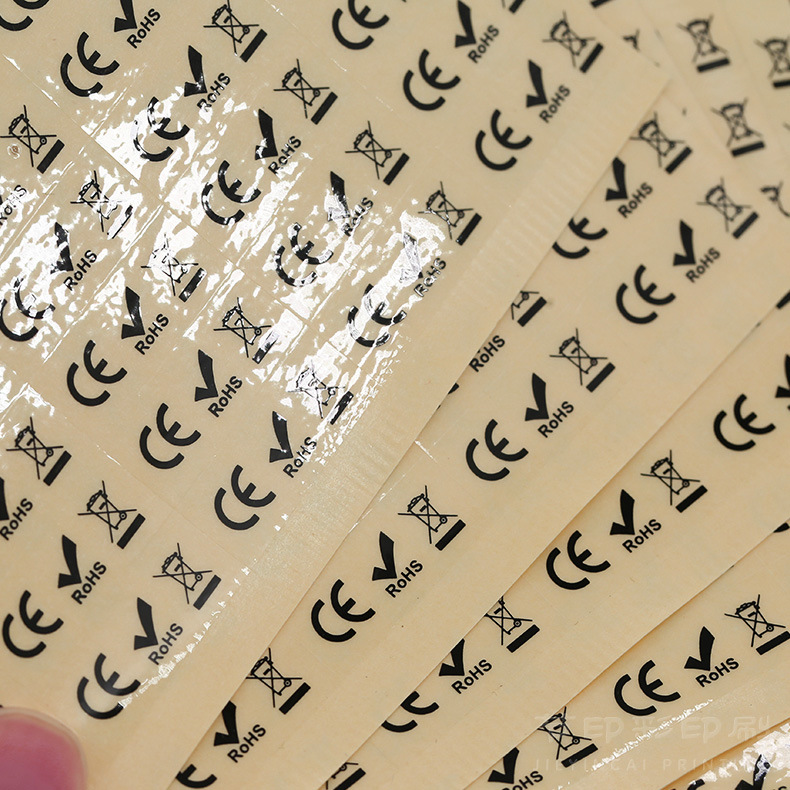 CE RoHS
CE
CE RoHS
CE RoHS
CE RoHS
CE RoHS
CE RoHS
CE RoHS
RoHS
CE RoHS
CE RoHS
CE RoHS
CE RoHS
RoHS
CE RoHS
CE RoHS
CE
CE RoHS
RoHS
CE RoHS
CE RoHS
CE RoHS
CE RoHS
CE RoHS
CE RoHS
CE RoHS
RoHS
印彩印刷